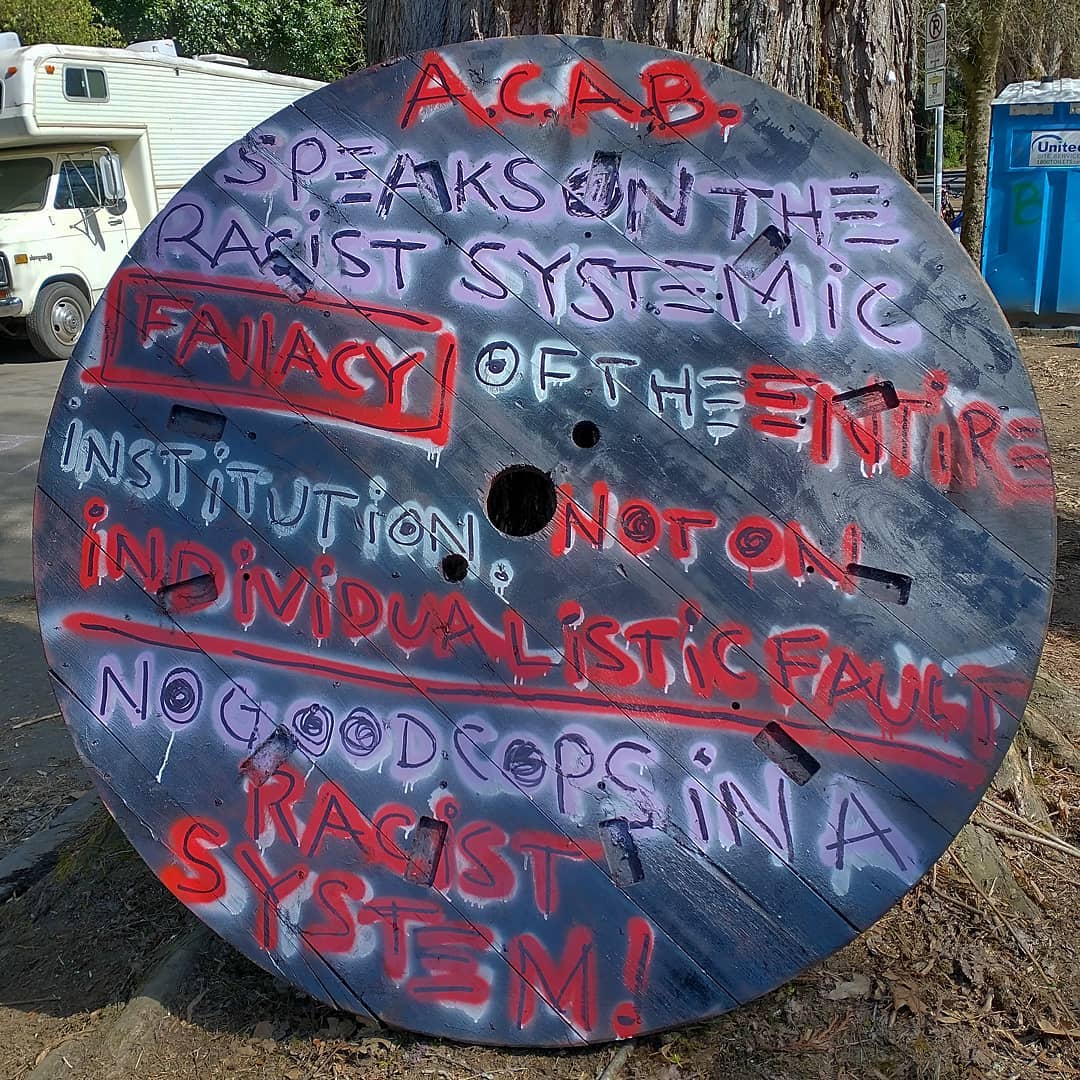 A.C.A.B.
SPEAKS ON THE
RACiST SYSTEMiC
FAllACY OF THE ENTiRE
iNSTiTUTiON. NOT ON
iNDiViDUALiSTiC FAULT
NO GOOD COPS iN A
RACiST
SYSTEM!
United
SITE SERVICES